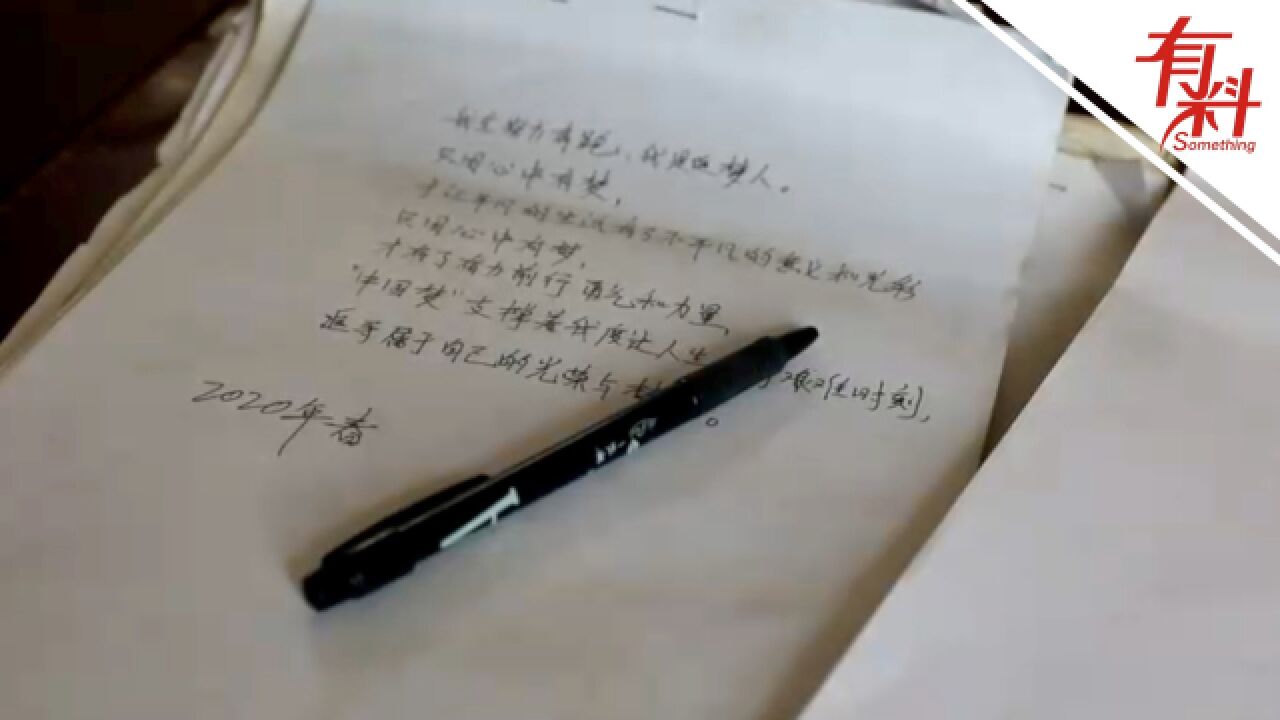 我是努力奔跑,我是追梦人。
只因心中有梦,
才让平凡的生活有了不平凡的意义和光彩
只因心中有梦,
才有了奋力前行勇气和力量,
"中国梦"支撑着我度过人生 艰难时刻,
返寻属于自己的光荣与 。
2020年春
有料
Something